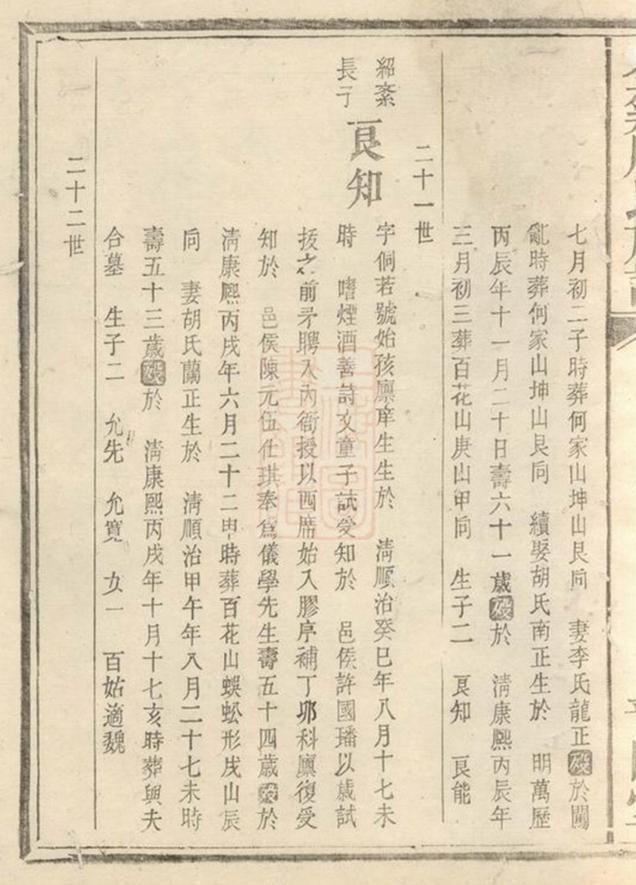 七月初二子時葬何家山坤山艮向 妻李氏龍正歿於闖
亂時葬何家山坤山艮同 續娶胡氏南正生於 明萬歷
丙辰年十一月二十日壽六十一歲歿於 清康熙丙辰年
三月初三葬百花山庚山甲同 生子二 良知 良能
二十一世
紹紊
長子
良知
字侗若號始孩廩庠生生於 清順治癸巳年八月十七未
時 嗜煙酒善詩文童子試受知於 邑侯許國璠以歲試
拔之前矛聘入內衙授以西席始入膠庠補丁卯科廩復受
知於 邑侯陳元伍仕琪奉爲儀學先生壽五十四歲歿於
清康熙丙戌年六月二十二申時葬百花山蜈蚣形戌山辰
同 妻胡氏蘭正生於 清順治甲午年八月二十七未時
壽五十三歲歿於 清康熙丙戌年十月十七亥時葬與夫
合墓 生子二 允先 允寬 女一 百姑適魏
二十二世